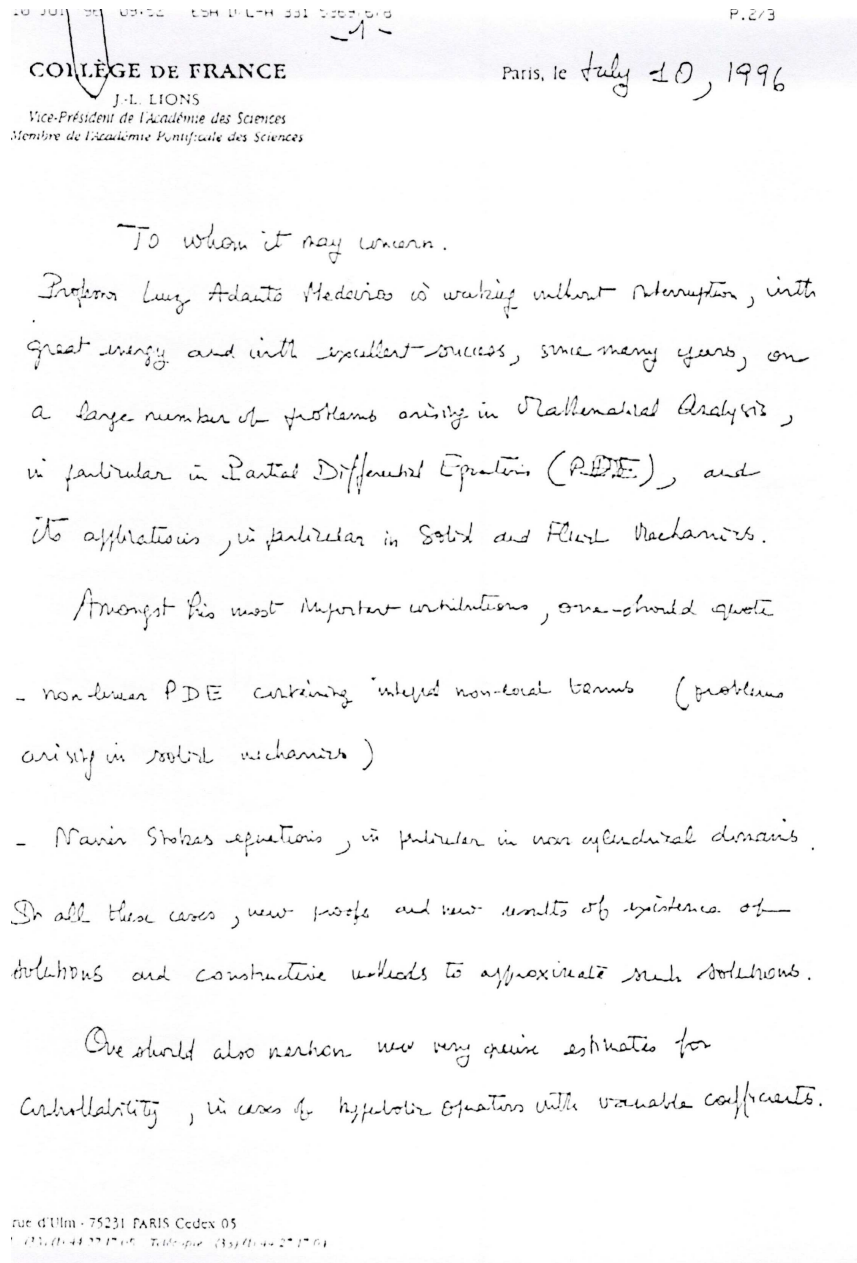 P.2/3
-1-
COLLÈGE DE FRANCE
Paris, le July 10, 1996
J.-L. LIONS
Vice-Président de l'Académie des Sciences
Membre de l'Académie Pontificale des Sciences
To whom it may concern.
Professor Luiz Adauto Medeiros is working without interruption, with
great energy and with excellent success, since many years, on
a large number of problems arising in Mathematical Analysis,
in particular in Partial Differential Equations (PDE), and
its applications, in particular in Solid and Fluid Mechanics.
Amongst his most important contributions, one should quote
- non linear PDE containing integral non-local terms (problems
arising in solid mechanics)
- Navier Stokes equations, in particular in non cylindrical domains.
In all these cases, new proofs and new results of existence of
solutions and constructive methods to approximate such solutions.
One should also mention new very precise estimates for
controllability, in cases of hyperbolic operators with variable coefficients.
rue d'Ulm - 75231 PARIS Cedex 05